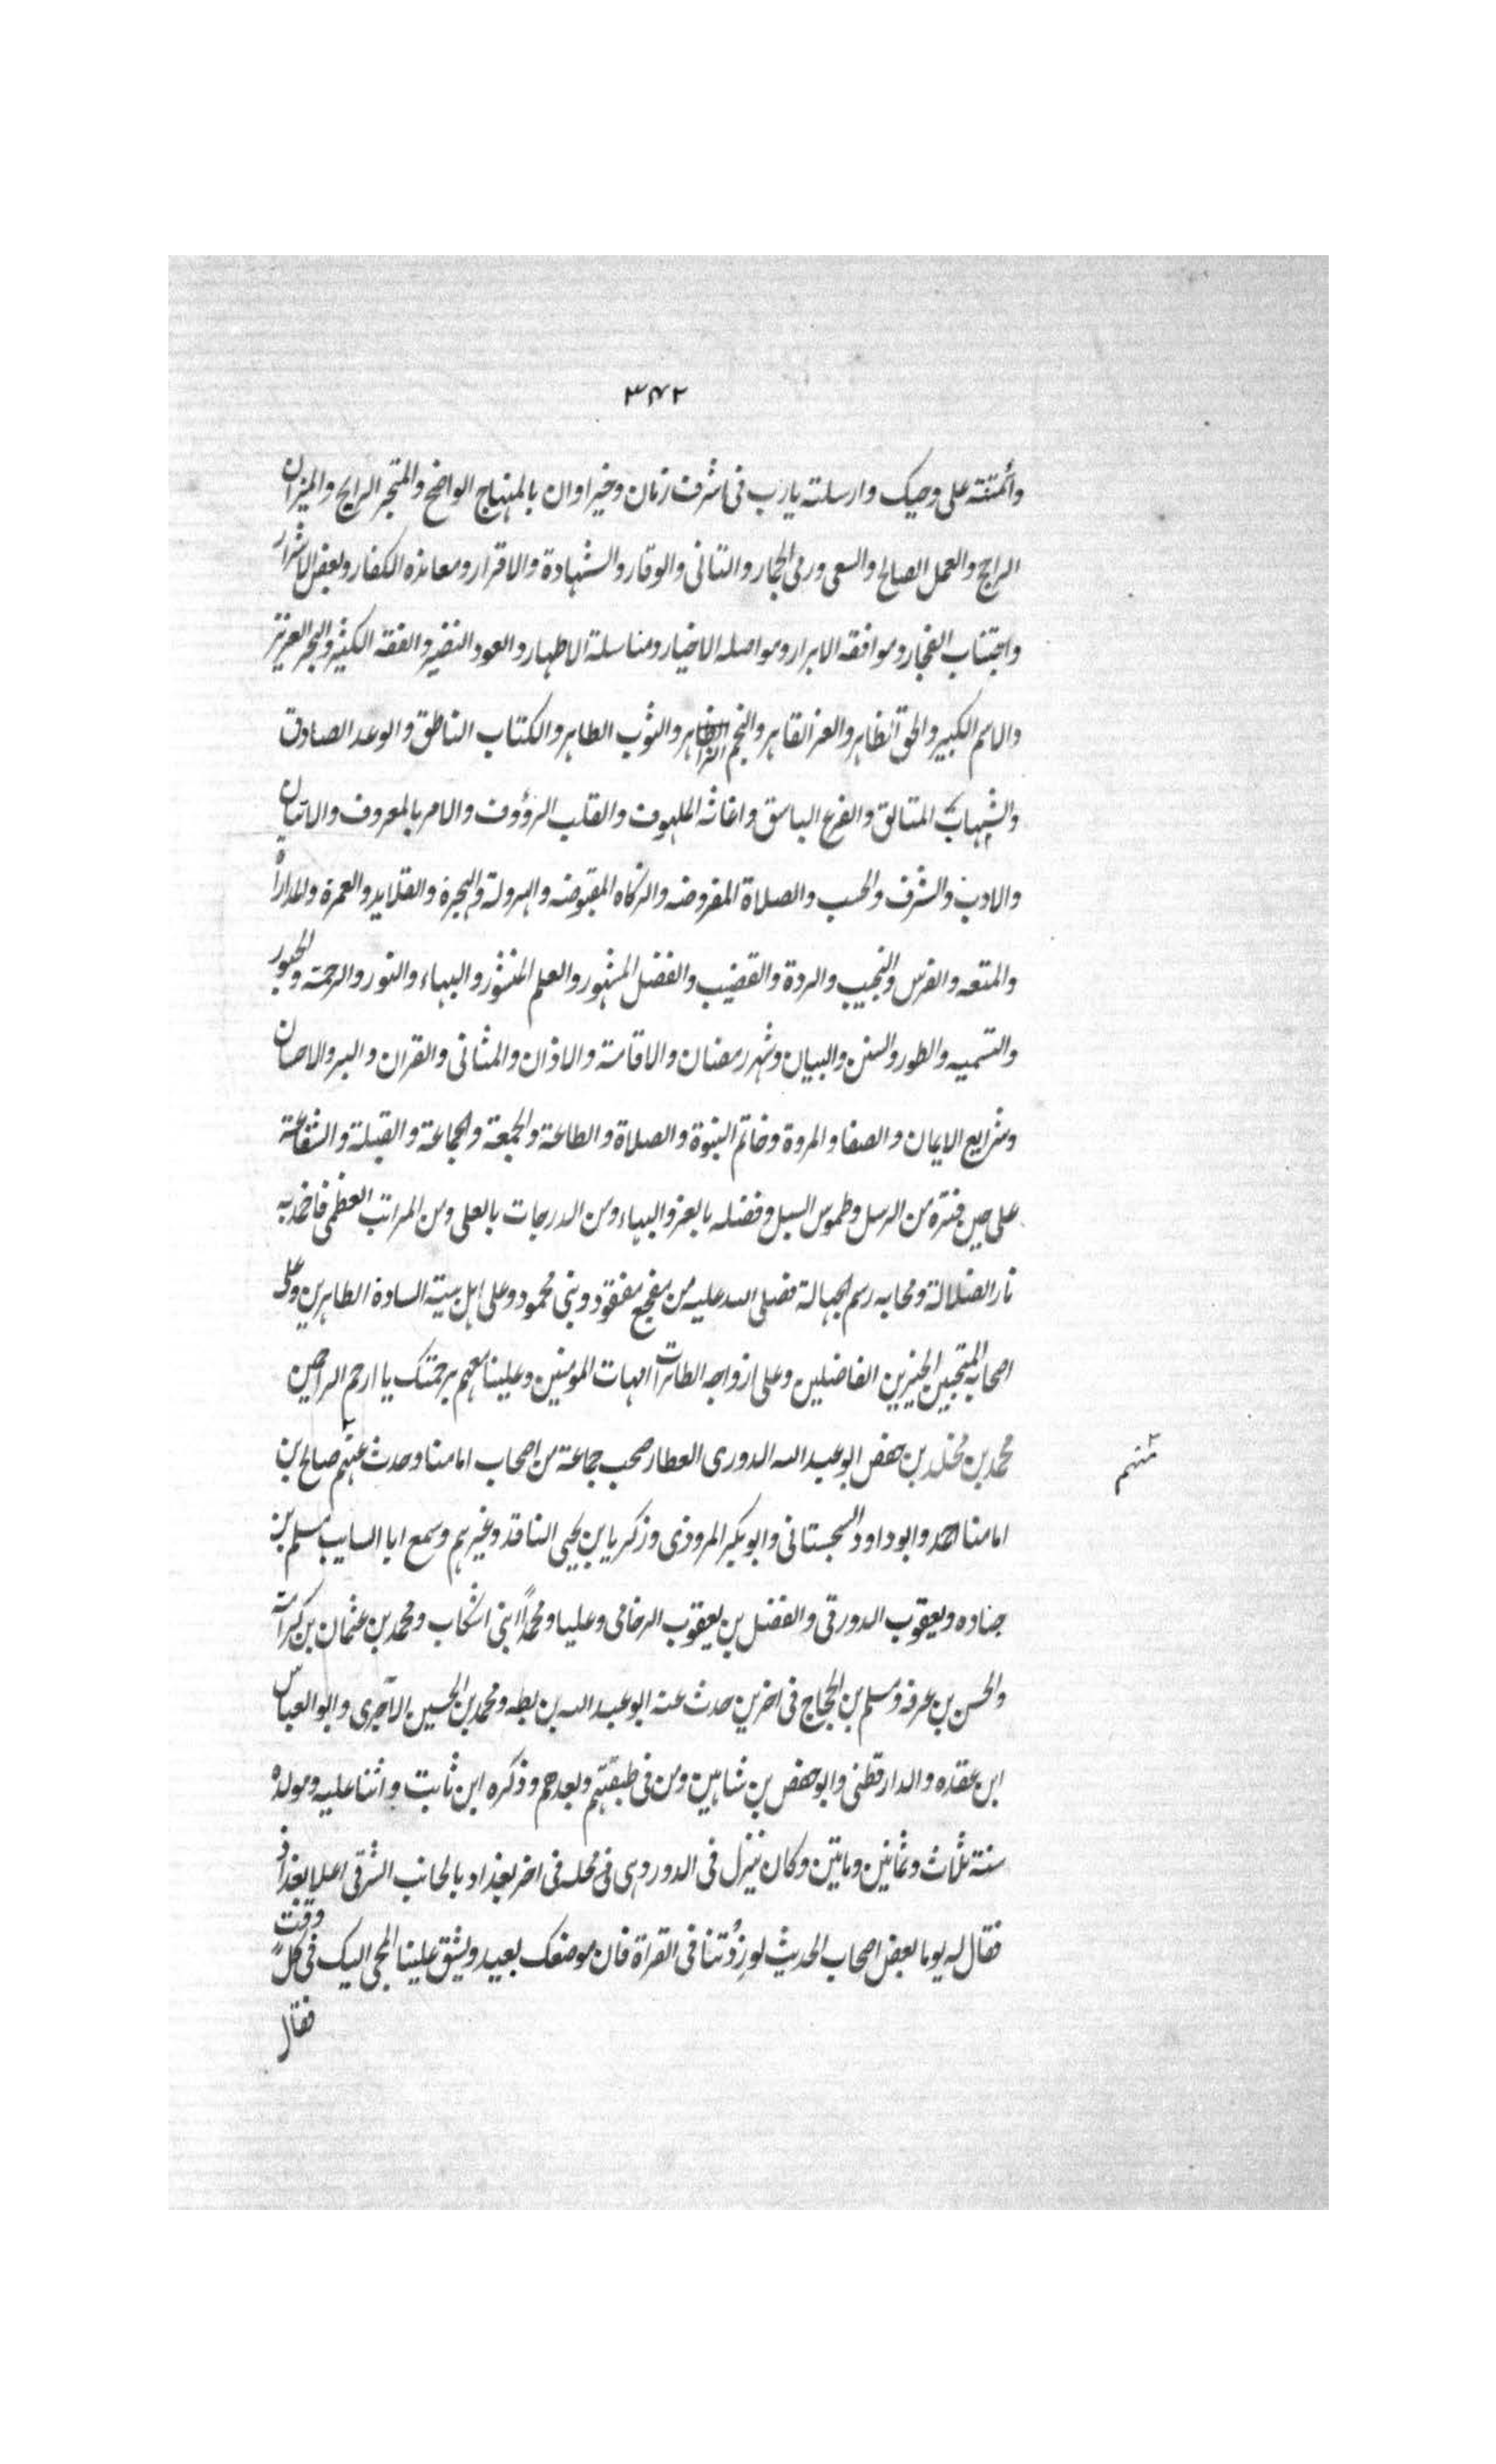 ٣٤٢
وأتمنته على وحيك وارسلته يارب فى اشرف زمان وخير اوان بالمنهاج الواضح والمتجر الرابح والميزان
الراجح والعمل الصالح والسعى ورمى الجمار والتانى والوقار والشهادة والاقرار ومعانده الكفار وبغض الاشرار
واجتناب الفجار وموافقه الابرار ومواصله الاخيار ومناسلة الاطهار والعود النضير والفقه الكثير والبحر الغزير
والاسم الكبير والحق الظاهر والعز القاهر والنجم الزاهر والثوب الطاهر والكتاب الناطق والوعد الصادق
والشهاب المتالق والفرع الباسق واغاثه الملهوف والقلب الرؤوف والامر بالمعروف والاتيان
والادب والشرف والحسب والصلاة المفروضه والزكاه المقبوضه والهرولة والهجرة والقلايد والعمرة والمداراة
والمتعه والفرس والنجيب والبردة والقضيب والفضل المشهور والعلم المنشور والبهاء والنور والرحمة والحبور
والتسميه والطور والسنن والبيان وشهر رمضان والاقامة والاذان والمثانى والقران والبر والاحسان
وشرايع الايمان والصفا والمروة وخاتم النبوة والصلاة والطاعة والجمعة والجماعة والقبلة والشفاعة
على حين فترة من الرسل وطموس السبل وفضله بالعز والبهاء ومن الدرجات بالعلى ومن المراتب العظمى فاخمد به
نار الضلالة ومحابه رسم الجهالة فصلى الله عليه من مفجع مفقود ونبى محمود وعلى اهل بيته السادة الطاهرين وعلى
اصحابه المنتجبين الخيرين الفاضلين وعلى ازواجه الطاهرات امهات المومنين وعلينا معهم برحمتك يا ارحم الراحمين
محمد بن مخلد بن حفص ابو عبد الله الدورى العطار صحب جماعة من اصحاب امامنا وحدث عنهم صالح بن
منهم
امامنا احمد وابو داود السجستانى وابو بكر المروذى وزكريا بن يحيى الناقد وغيرهم وسمع ابا السايب مسلم بن
جناده ويعقوب الدورقى والفضل بن يعقوب الرخامى وعليا ومحمدًا ابنى اشكاب ومحمد بن عثمان بن كرامة
والحسن بن عرفه ومسلم بن الحجاج فى اخرين حدث عنه ابو عبد الله بن بطه ومحمد بن الحسين الآجرى وابو العباس
ابن عقده والدارقطنى وابو حفص بن شاهين ومن فى طبقتهم وبعدهم وذكره ابن ثابت واثنا عليه ومولده
سنة ثلاث وثمانين وماتين وكان ينزل فى الدور وهى فى محله فى اخر بغداد بالجانب الشرقى اعلا بغداد
فقال له يوما بعض اصحاب الحديث لو زدُتنا فى القراة فان موضعك بعيد ويشق علينا المجى اليك فى كل وقت
فقال